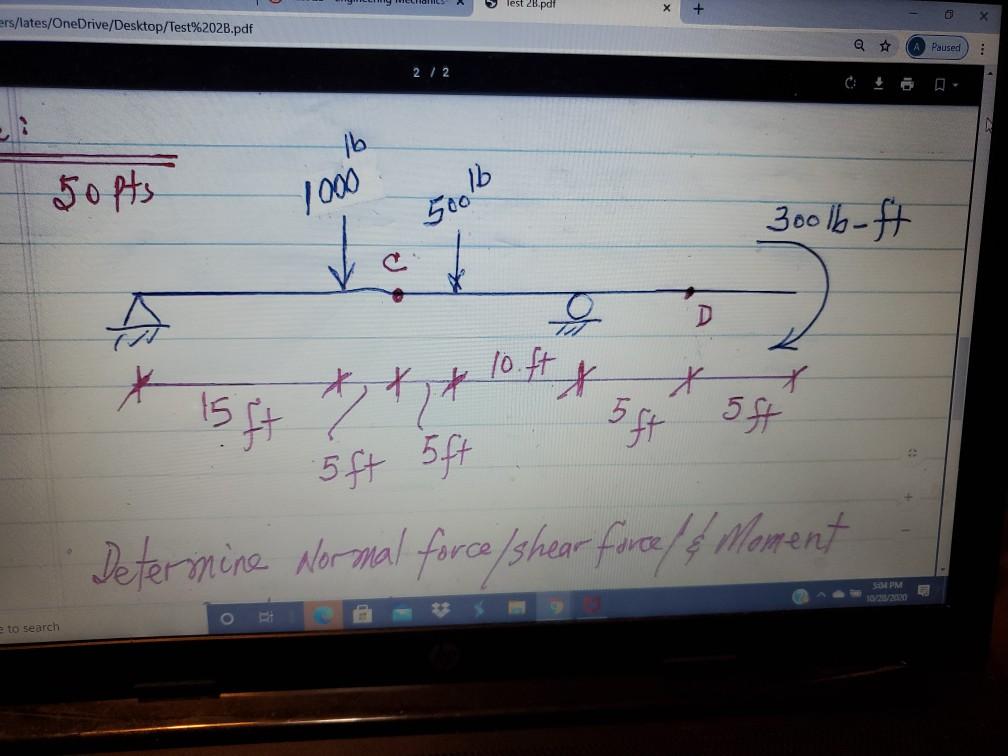 Test 2B.pdf
ers/lates/OneDrive/Desktop/Test%202B.pdf
A Paused
2 / 2
e:
50 pts
1000 lb
500 lb
300 lb-ft
C
D
15 ft
5 ft
5 ft
10 ft
5 ft
5 ft
Determine Normal force/shear force/& Moment
5:04 PM
10/28/2020
e to search
hp